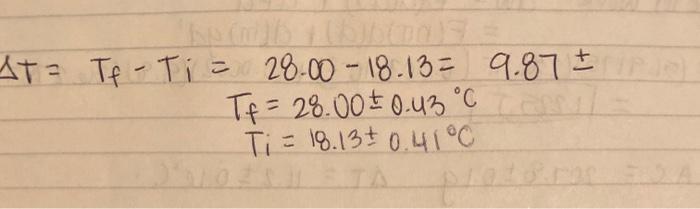 ΔT = Tf - Ti = 28.00 - 18.13 = 9.87 ±
Tf = 28.00 ± 0.43 °C
Ti = 18.13 ± 0.41 °C